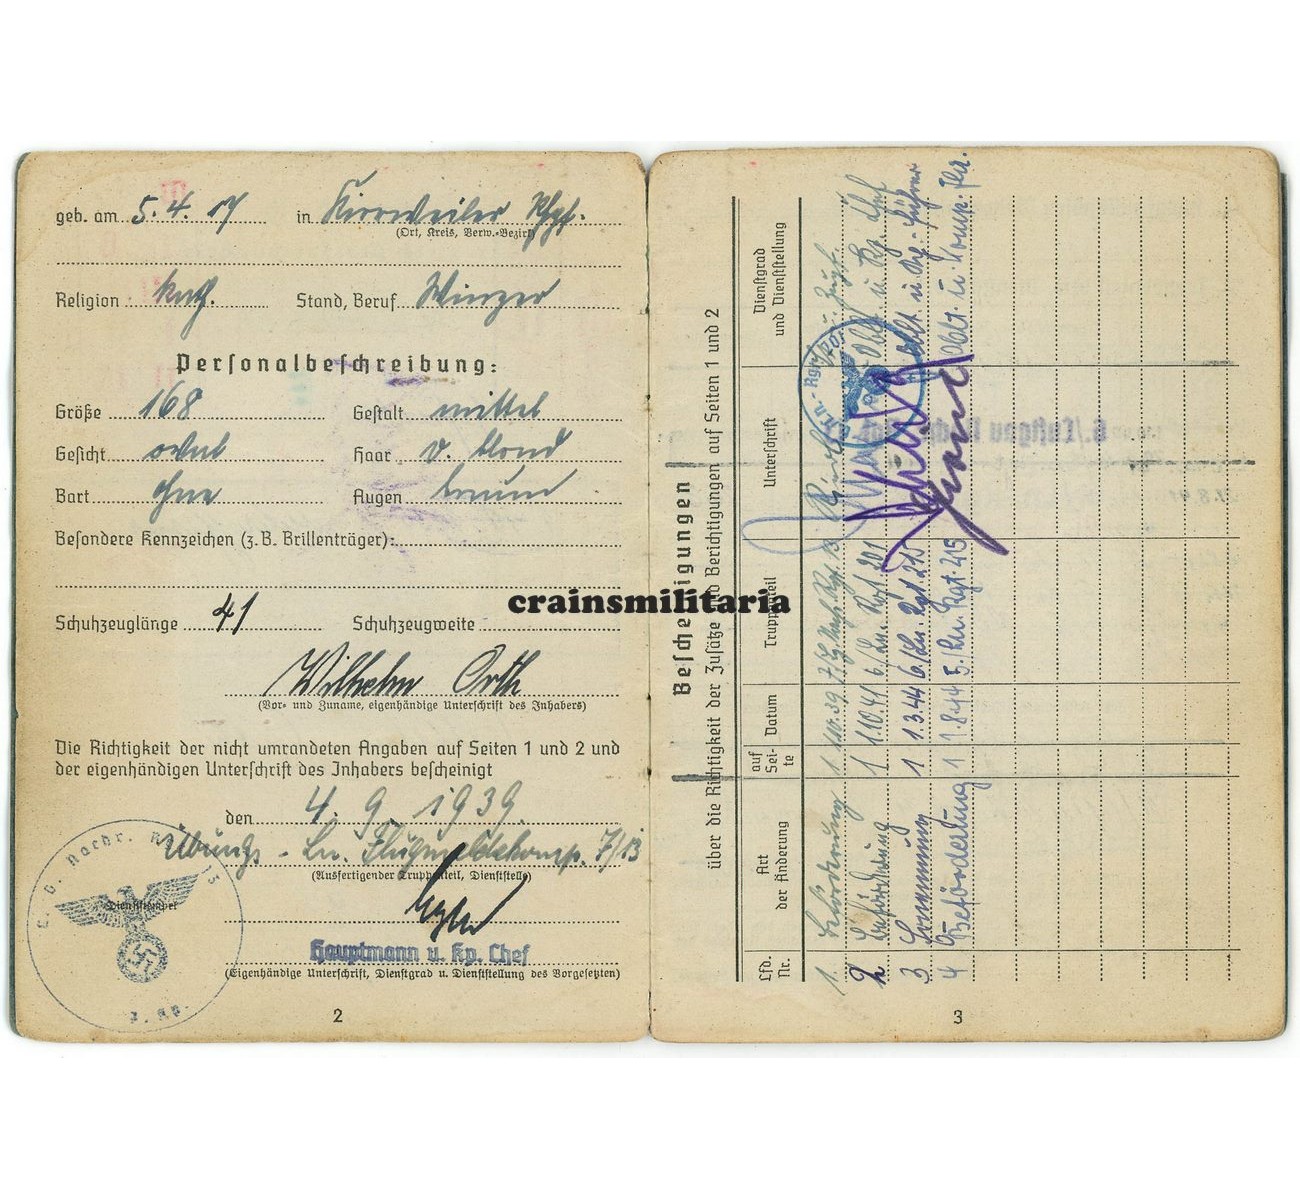 geb. am 5. 4. 07 in Kirrweiler Pfgf.
(Ort, Kreis, Verw.-Bezirk)
Religion kath. Stand, Beruf Winzer
Personalbeschreibung:
Größe 168 Gestalt mittel
Gesicht oval Haar d. blond
Bart ohne Augen braun
Besondere Kennzeichen (z.B. Brillenträger):
Schuhzeuglänge 41 Schuhzeugweite
Wilhelm Orth
(Vor- und Zuname, eigenhändige Unterschrift des Inhabers)
Die Richtigkeit der nicht umrandeten Angaben auf Seiten 1 und 2 und
der eigenhändigen Unterschrift des Inhabers bescheinigt
den 4. 9. 1939.
Übungs-Ln. Flugmeldekomp. 7/13
(Ausfertigender Truppenteil, Dienststelle)
Dienststempel
Hauptmann u. Kp. Chef
(Eigenhändige Unterschrift, Dienstgrad u. Dienststellung des Vorgesetzten)
2
crainsmilitaria
Bescheinigungen
über die Richtigkeit der Zusätze und Berichtigungen auf Seiten 1 und 2
Lfd. Nr. Art der Änderung auf Seite Datum Truppenteil Unterschrift Dienstgrad und Dienststellung
1. Beförderung 1 1.10.39
2 Beförderung 1 1.10.41 6./Ln. Rgt 201
3 1 1.3.44 6./Ln. Rgt. 215
4 Beförderung 1 1.8.44 5./Ln. Rgt. 215 Oblt. u. Komp. Chef
3